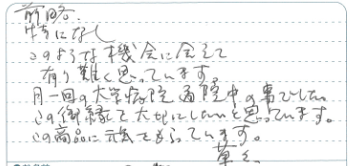 前略.
特になし
このような機会に会えて
有り難く思っています。
月一回の大学病院通院中の事でしたい
この御縁て大切にしたいと思っています。
この商品に元気をもらっています。
草々